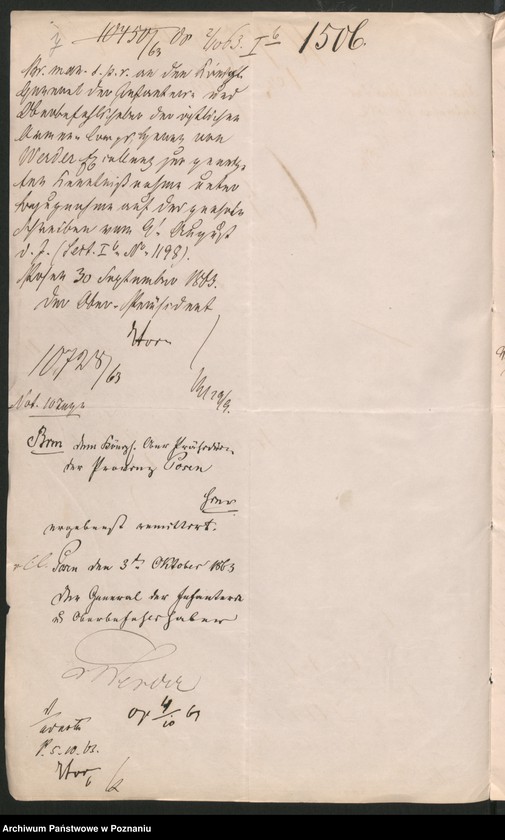 10450/63 2/10 63. I b 1506.
Br. man. d. p. r. an den Königl.
General der Infanterie und
Oberbefehlshaber der östlichen
Armee-Corps Herrn von
Werder Excellenz zur geneig-
ten Kenntnißnahme unter
Bezugnahme auf das geehrte
Schreiben vom August
d. J. (Sect. I b No 1198).
Posen 30 September 1863.
Der Ober-Präsident
Hor
10728/63
Not. 10 Tage
Brm dem Königl. Ober Präsidium
der Provinz Posen
hier
ergebenst remittirt.
Posen den 3t Oktober 1863
Der General der Infanterie
u Oberbefehlshaber
v Werder
4/10 63
P. 5.10.63.
Hor
Archiwum Państwowe w Poznaniu